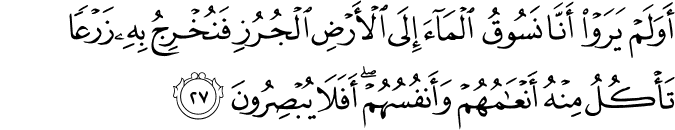 أَوَلَمۡ يَرَوۡاْ أَنَّا نَسُوقُ ٱلۡمَآءَ إِلَى ٱلۡأَرۡضِ ٱلۡجُرُزِ فَنُخۡرِجُ بِهِۦ زَرۡعٗا
تَأۡكُلُ مِنۡهُ أَنۡعَٰمُهُمۡ وَأَنفُسُهُمۡۚ أَفَلَا يُبۡصِرُونَ ٢٧